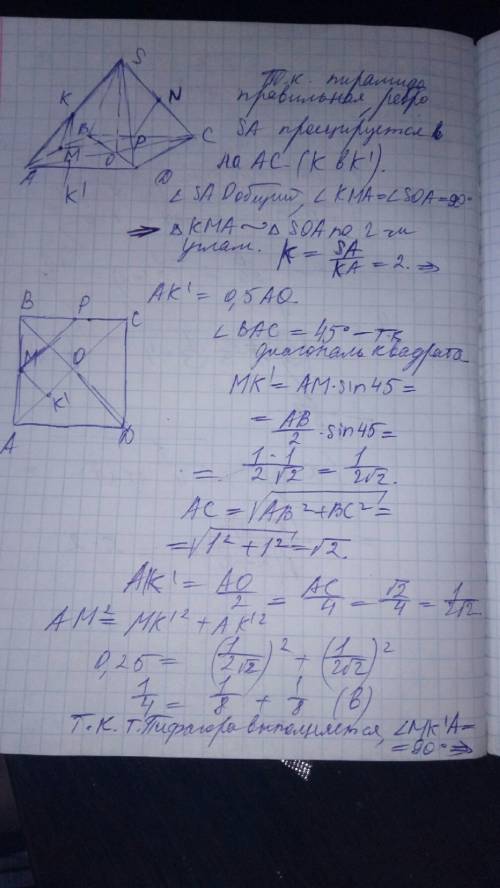 S
K
N
B
P
C
M
O
A
D
K'
Т.к. пирамида
правильная, ребро
SA проецируется в
на AC (K в K').
∠SAO общий, ∠KMA=∠SOA=90°
⇒ △KMA ~ △SOA по 2-м
углам. K = SA/KA = 2. ⇒
AK' = 0,5AO.
B P C
M O
K'
A D
∠BAC = 45° – т.к.
диагональ квадрата
MK' = AM·sin45 =
= AB/2 · sin45 =
= 1·1/2√2 = 1/2√2.
AC = √AB²+BC² =
= √1²+1² = √2.
AK' = AO/2 = AC/4 = √2/4 = 1/2√2
AM² = MK'² + AK'²
0,25 = (1/2√2)² + (1/2√2)²
1/4 = 1/8 + 1/8 (В)
Т.к. т.Пифагора выполняется, ∠MK'A=
= 90° ⇒